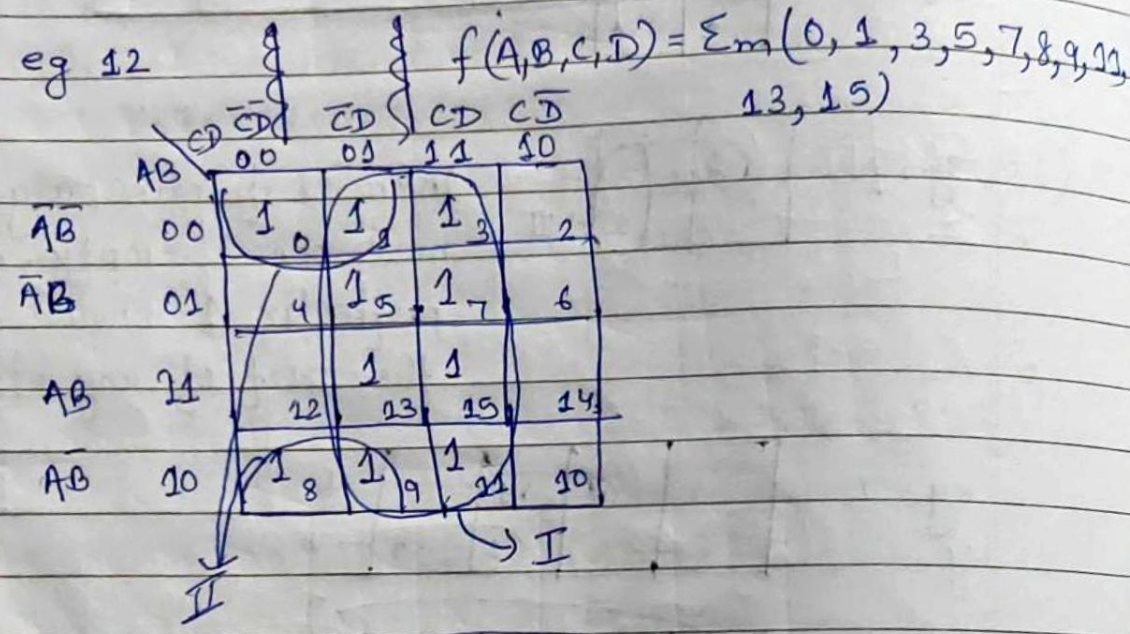 eg 12 f(A,B,C,D) = Σm(0, 1, 3, 5, 7, 8, 9, 11,
13, 15)
CD C̅D̅ C̅D CD CD̅
AB 00 01 11 10
A̅B̅ 00 1 0 1 1 1 3 2
A̅B 01 4 1 5 1 7 6
AB 11 12 1 13 1 15 14
AB̅ 10 1 8 1 9 1 11 10
I
II